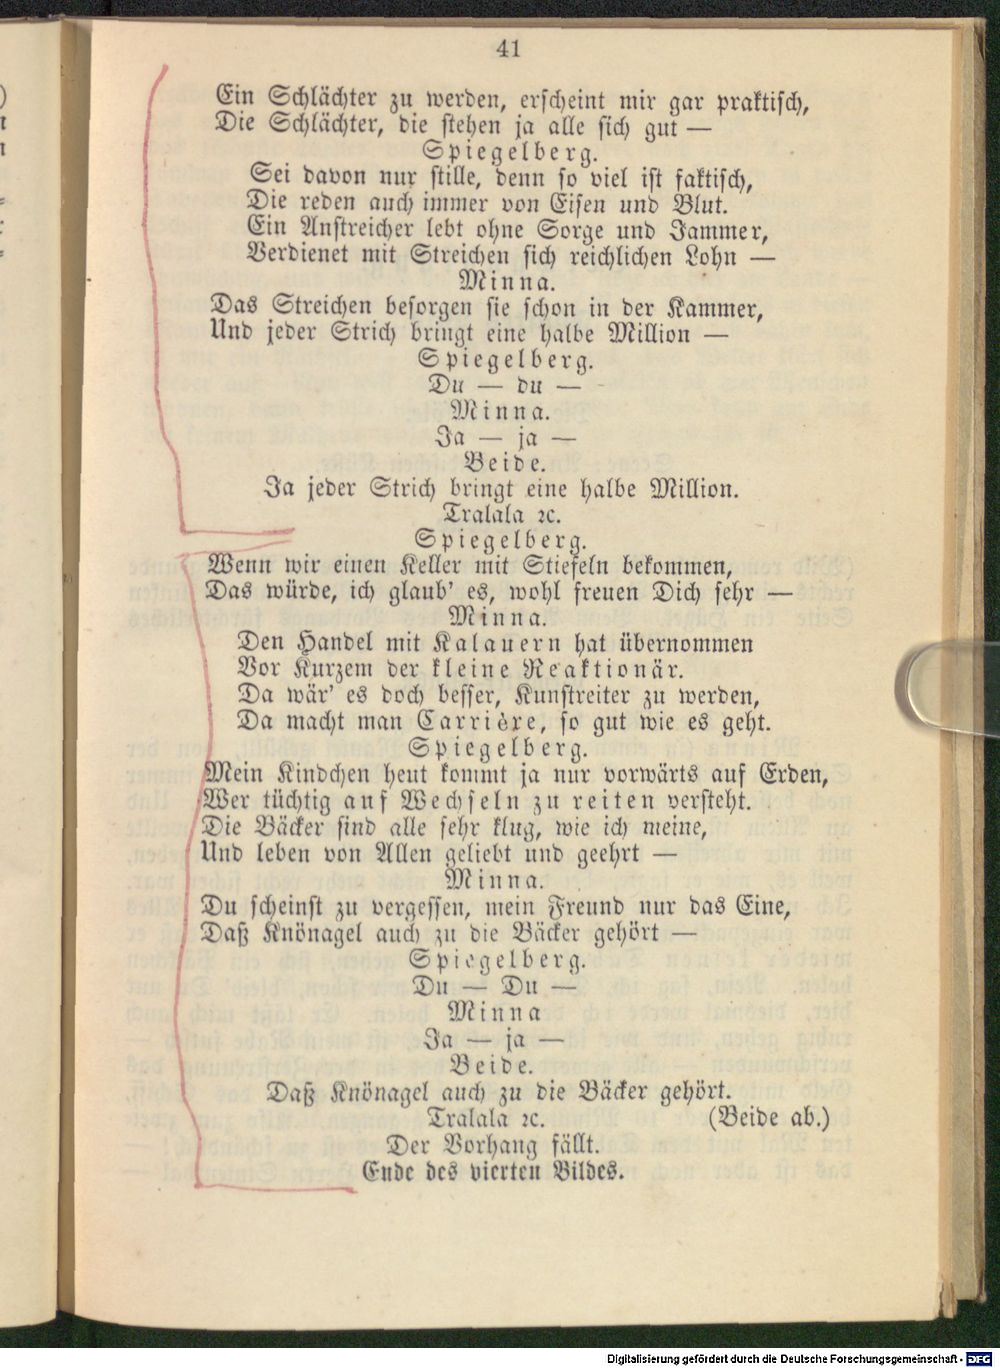 41
Ein Schlächter zu werden, erscheint mir gar praktisch,
Die Schlächter, die stehen ja alle sich gut —
Spiegelberg.
Sei davon nur stille, denn so viel ist faktisch,
Die reden auch immer von Eisen und Blut.
Ein Anstreicher lebt ohne Sorge und Jammer,
Verdienet mit Streichen sich reichlichen Lohn —
Minna.
Das Streichen besorgen sie schon in der Kammer,
Und jeder Strich bringt eine halbe Million —
Spiegelberg.
Du — du —
Minna.
Ja — ja —
Beide.
Ja jeder Strich bringt eine halbe Million.
Tralala ꝛc.
Spiegelberg.
Wenn wir einen Keller mit Stiefeln bekommen,
Das würde, ich glaub' es, wohl freuen Dich sehr —
Minna.
Den Handel mit Kalauern hat übernommen
Vor Kurzem der kleine Reaktionär.
Da wär' es doch besser, Kunstreiter zu werden,
Da macht man Carrière, so gut wie es geht.
Spiegelberg.
Mein Kindchen heut kommt ja nur vorwärts auf Erden,
Wer tüchtig auf Wechseln zu reiten versteht.
Die Bäcker sind alle sehr klug, wie ich meine,
Und leben von Allen geliebt und geehrt —
Minna.
Du scheinst zu vergessen, mein Freund nur das Eine,
Daß Knönagel auch zu die Bäcker gehört —
Spiegelberg.
Du — Du —
Minna
Ja — ja —
Beide.
Daß Knönagel auch zu die Bäcker gehört.
Tralala ꝛc. (Beide ab.)
Der Vorhang fällt.
Ende des vierten Bildes.
Digitalisierung gefördert durch die Deutsche Forschungsgemeinschaft - DFG